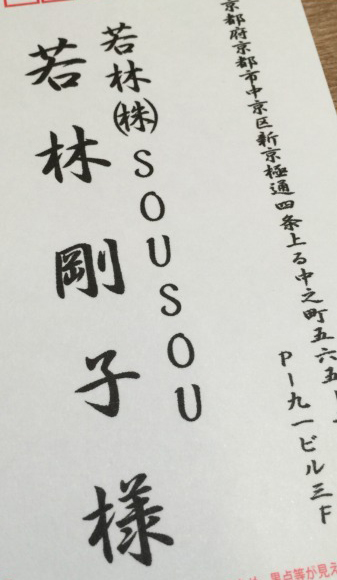 京都府京都市中京区新京極通四条上る中之町五六五
P一九一ビル三F
若林㈱SOUSOU
若林剛子様
黒点等が見え